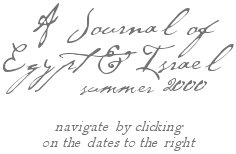 A Journal of
Egypt & Israel
summer 2000
navigate by clicking
on the dates to the right